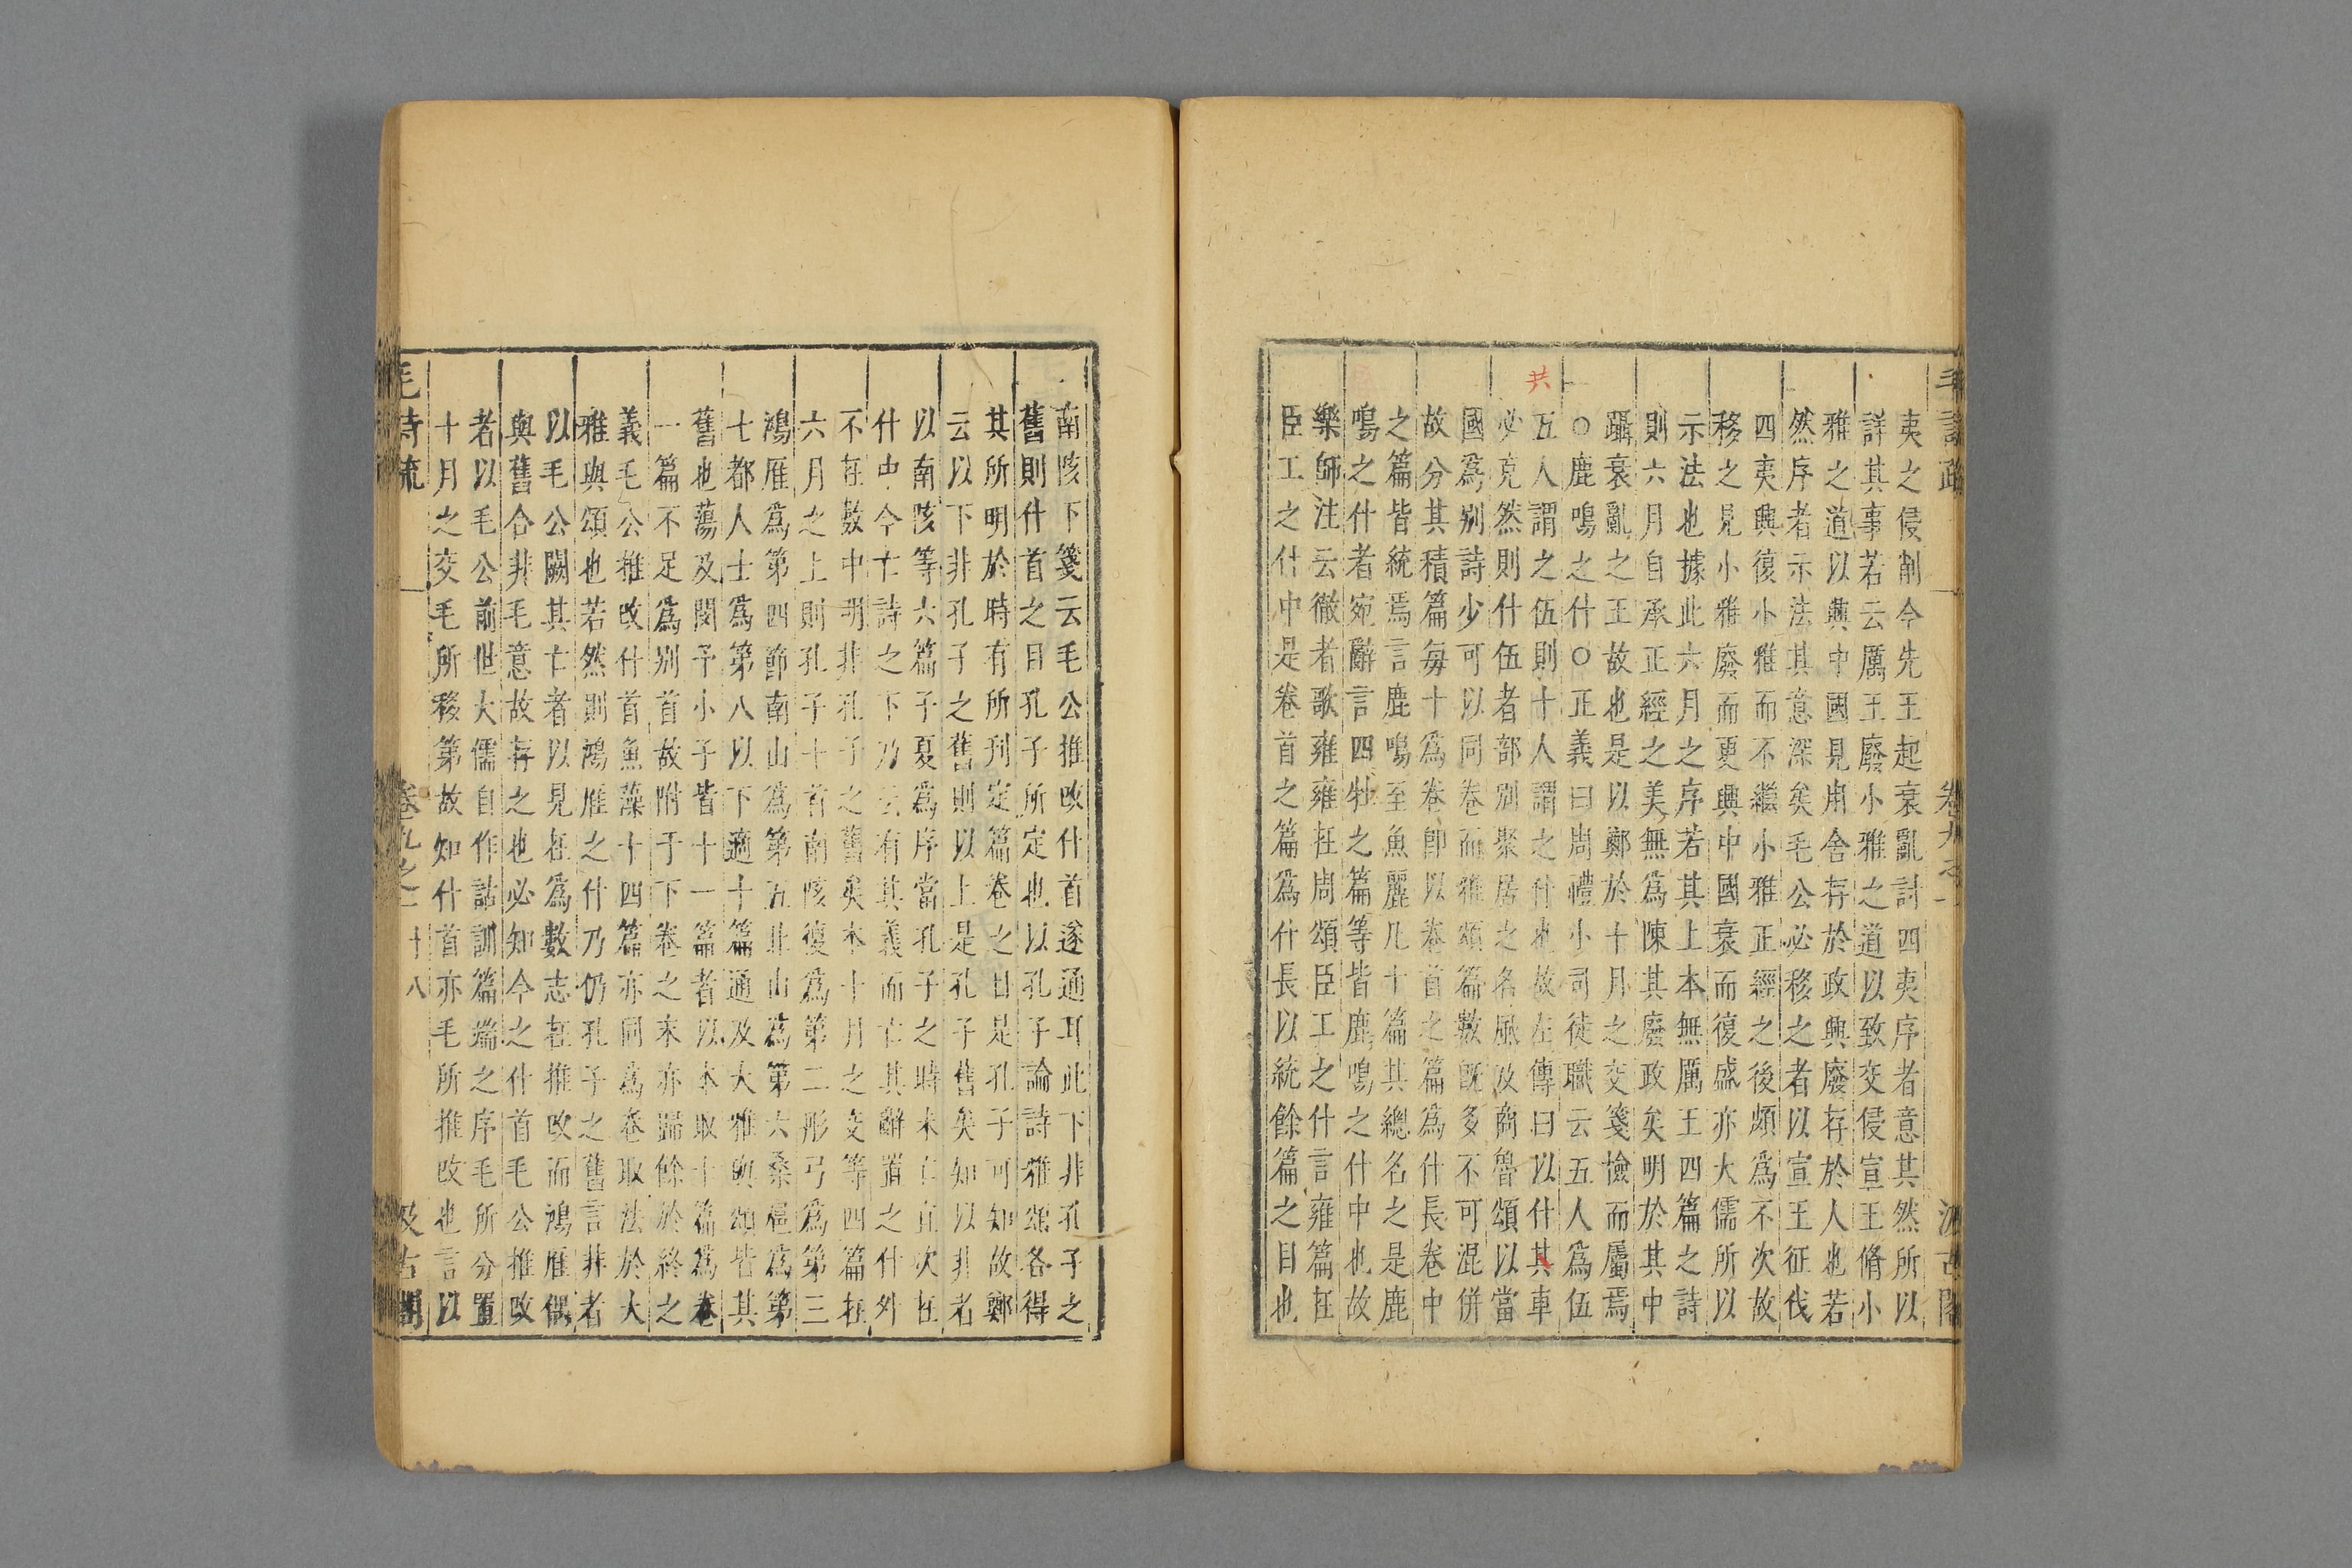 毛詩疏 卷九之一 汲古閣
夷之侵削今先王起衰亂討四夷序者意其然所以
詳其事若云厲王廢小雅之道以致交侵宣王脩小
雅之道以興中國見用舍存於政興廢存於人也若
然序者示法其意深矣毛公必移之者以宣王征伐
四夷興復小雅而不繼小雅正經之後頗為不次故
移之見小雅廢而更興中國衰而復盛亦大儒所以
示法也據此六月之序若其上本無厲王四篇之詩
則六月自承正經之美無為陳其廢政矣明於其中
躡衰亂之王故也是以鄭於十月之交箋檢而屬焉
○鹿鳴之什○正義曰周禮小司徒職云五人為伍
五人謂之伍則十人謂之什也故左傳曰以什其車
共
必克然則什伍者部別聚居之名風及商魯頌以當
國爲别詩少可以同卷而雅頌篇數既多不可混併
故分其積篇每十為卷卽以卷首之篇為什長卷中
之篇皆統焉言鹿鳴至魚麗凡十篇其總名之是鹿
鳴之什者宛辭言四牡之篇等皆鹿鳴之什中也故
樂師注云徹者歌雍雍在周頌臣工之什言雍篇在
臣工之什中是卷首之篇爲什長以統餘篇之目也
南陔下箋云毛公推改什首遂通耳此下非孔子之
舊則什首之目孔子所定也以孔子論詩雅頌各得
其所明於時有所刋定篇卷之目是孔子可知故鄭
云以下非孔子之舊則以上是孔子舊矣知以非者
以南陔等六篇子夏為序當孔子之時未亡宜次在
什中今亡詩之下乃云有其義而亡其辭置之什外
不在數中明非孔子之舊矣本十月之交等四篇在
六月之上則孔子十首南陔復為第二彤弓爲第三
鴻雁爲第四節南山為第五北山為第六桑扈爲第
七都人士爲第八以下適十篇通及大雅與頌皆其
舊也蕩及閔予小子皆十一篇者以本取十篇為卷
一篇不足爲别首故附于下卷之末亦歸餘於終之
義毛公推改什首魚藻十四篇亦同為卷取法於大
雅與頌也若然則鴻雁之什乃仍孔子之舊言非者
以毛公闕其亡者以見在爲數志在推改而鴻雁偶
與舊合非毛意故存之也必知今之什首毛公推改
者以毛公前世大儒自作詁訓篇端之序毛所分置
十月之交毛所移第故知什首亦毛所推改也言以
毛詩疏 卷九之一 十八 汲古閣